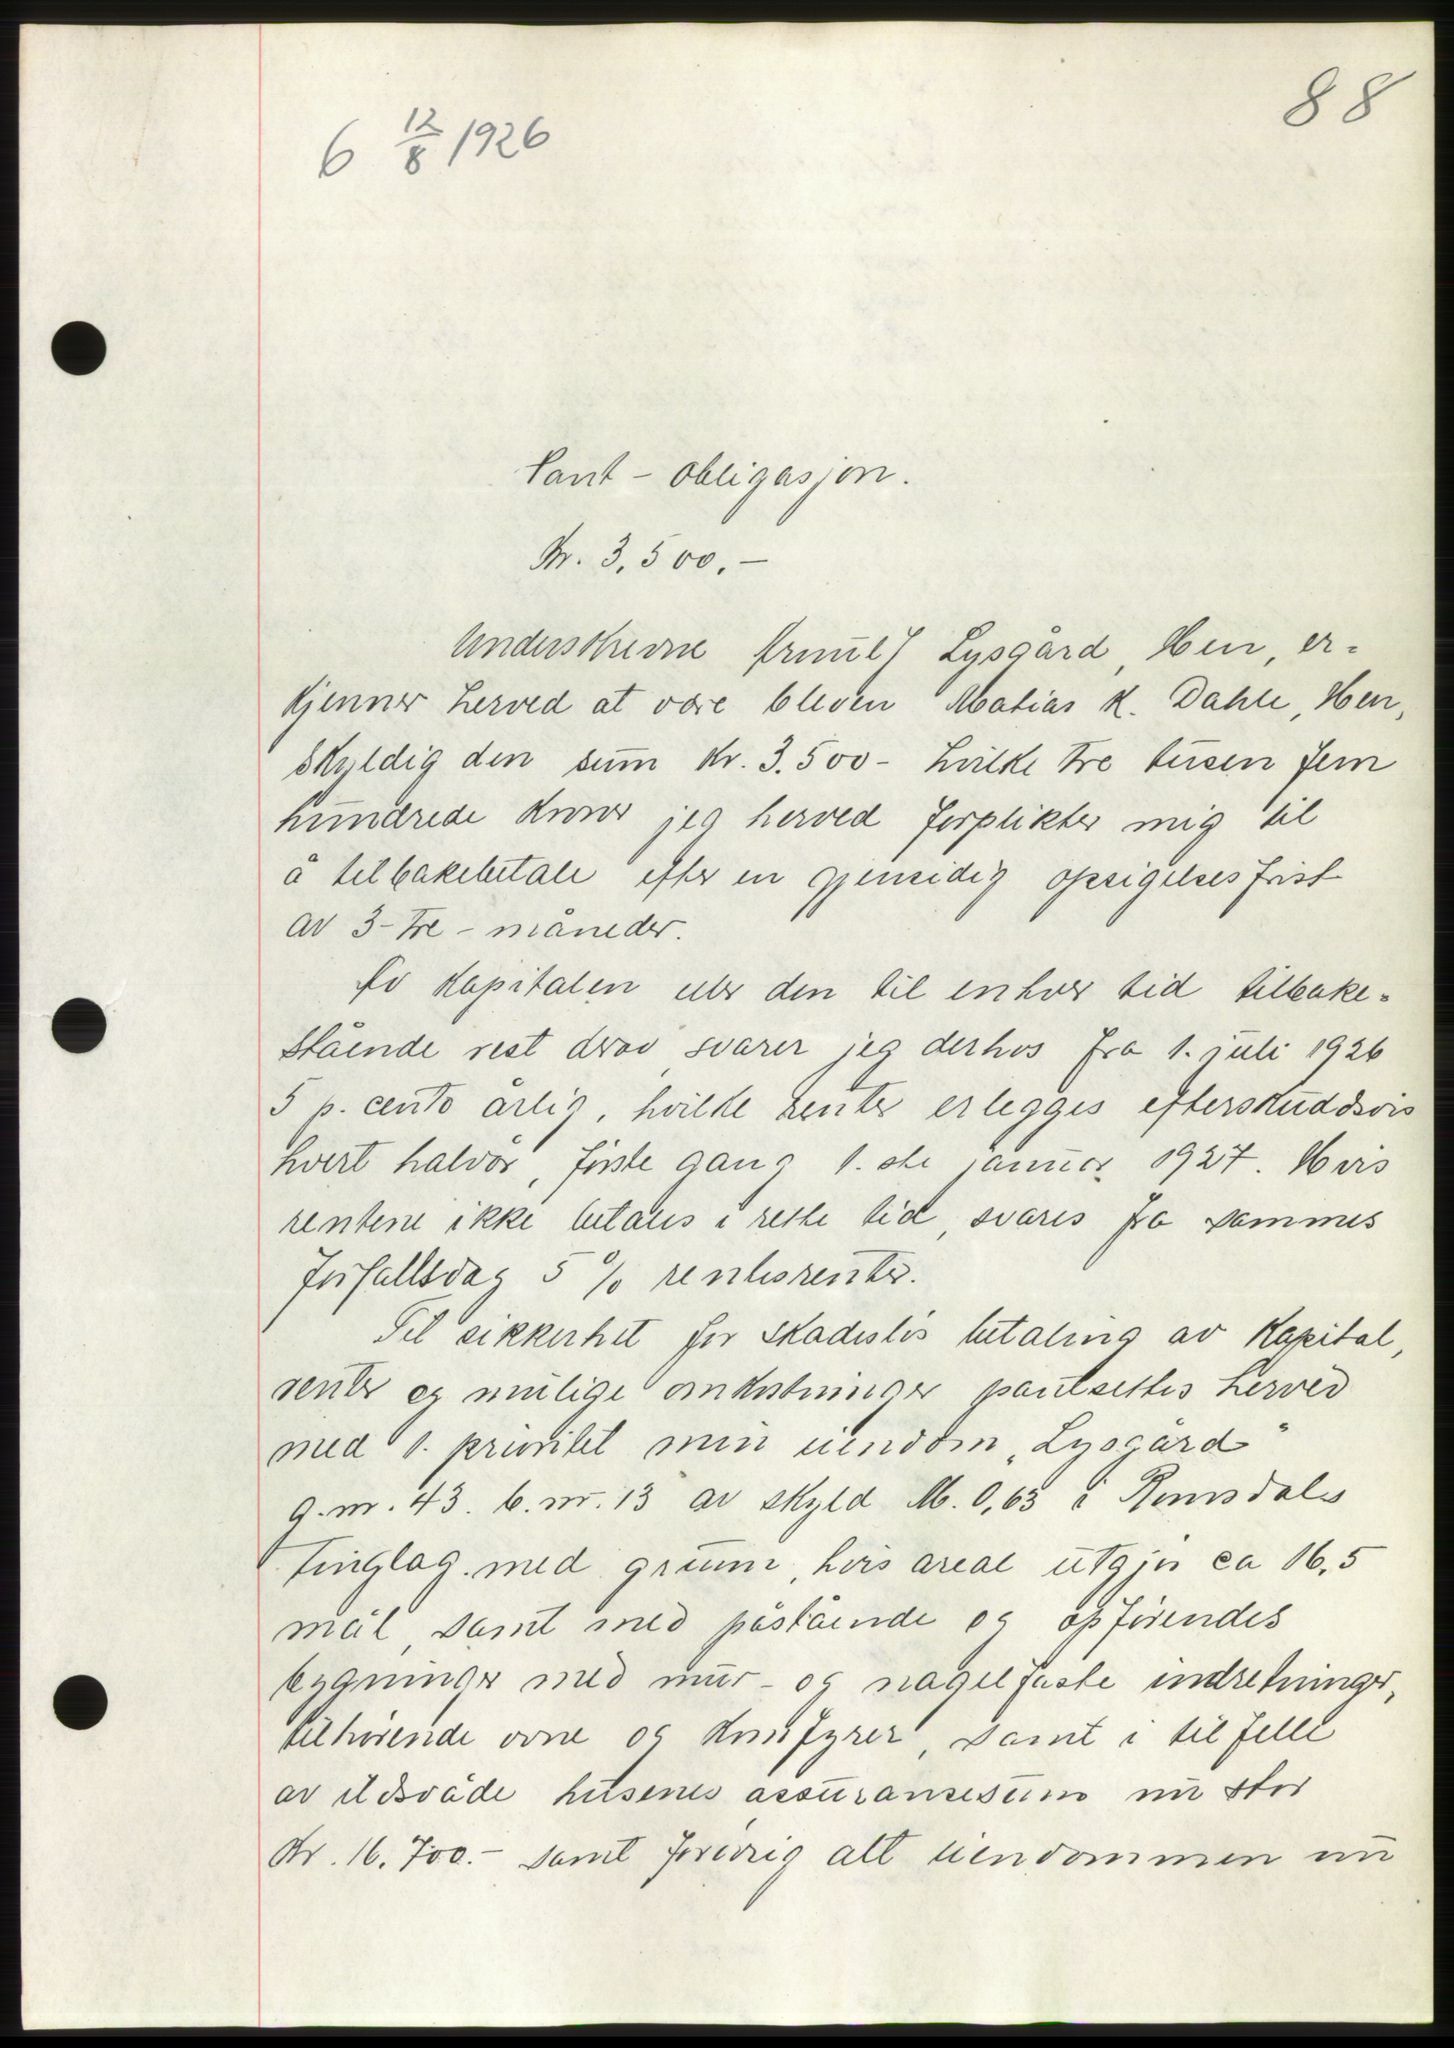 88
6 12/8 1926
Pant-obligasjon.
Kr. 3,500.-
Underskrevne Lysgård, Hen, er-
kjenner herved at være bleven Matias K. Dahle, Hen,
skyldig den sum kr. 3.500- hvilke tre tusen fem
hundrede kroner jeg herved forplikter mig til
å tilbakebetale efter en gjensidig opsigelsesfrist
av 3-tre-måneder.
Av kapitalen eller den til enhver tid tilbake-
stående rest derav, svarer jeg derhos fra 1. juli 1926
5 p. cento årlig, hvilke renter erlegges efterskuddsvis
hvert halvår, første gang 1. ste januar 1927. Hvis
rentene ikke betales i rette tid, svares fra sammes
forfallsdag 5 % rentesrenter.
Til sikkerhet for skadesløs betaling av kapital,
renter og mulige omkostninger pantsettes herved
med 1. prioritet min eiendom „Lysgård"
g.nr. 43. b.nr. 13 av skyld M. 0,63 i Romsdals
tinglag. med grunn, hvis areal utgjør ca 16,5
mål, samt med påstående og opførendes
bygninger med mur- og nagelfaste indretninger,
tilhørende ovne og komfyrer, samt i tilfelle
av ildsvåde husenes assuransesum nu stor
Kr. 16.700.- samt forøvrig alt eiendommen nu